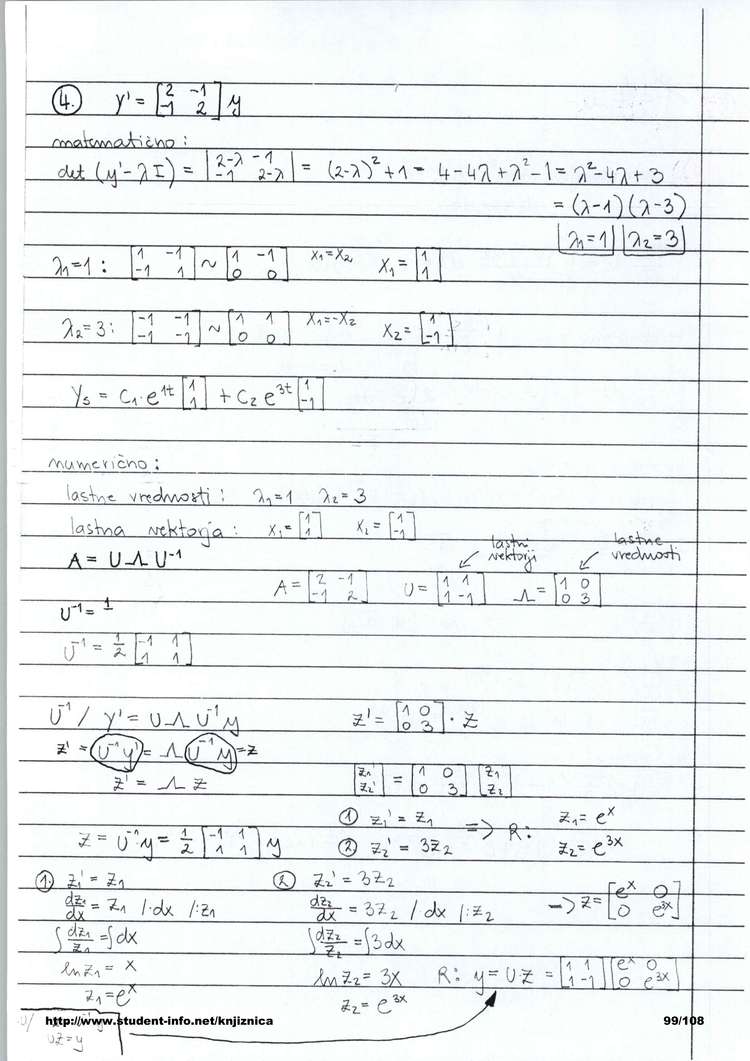 4. y' = [2 -1; -1 2] y
matematično:
det (y' - λI) = |2-λ -1; -1 2-λ| = (2-λ)² + 1 = 4 - 4λ + λ² - 1 = λ² - 4λ + 3
= (λ-1)(λ-3)
λ₁=1 λ₂=3
λ₁=1: [1 -1; -1 1] ~ [1 -1; 0 0] x₁=x₂ X₁ = [1; 1]
λ₂=3: [-1 -1; -1 -1] ~ [1 1; 0 0] x₁=-x₂ X₂ = [1; -1]
Ys = C₁·e^1t [1; 1] + C₂ e^3t [1; -1]
numerično:
lastne vrednosti: λ₁=1 λ₂=3
lastna vektorja: x₁=[1; 1] x₂=[1; -1]
lastni vektorji
lastne vrednosti
A = UΛU⁻¹
A = [2 -1; -1 2] U = [1 1; 1 -1] Λ = [1 0; 0 3]
U⁻¹ = 1
U⁻¹ = 1/2 [-1 1; 1 1]
U⁻¹ / y' = UΛU⁻¹y z' = [1 0; 0 3] · z
z' = U⁻¹y' = Λ U⁻¹y = z
z' = Λ z [z₁'; z₂'] = [1 0; 0 3] [z₁; z₂]
① z₁' = z₁ => R: z₁ = e^x
② z₂' = 3z₂ z₂ = e^3x
z = U⁻¹y = 1/2 [-1 1; 1 1] y
①. z₁' = z₁ ② z₂' = 3z₂
dz₁/dx = z₁ /·dx /:z₁ dz₂/dx = 3z₂ / dx /:z₂ -> z = [e^x 0; 0 e^3x]
∫dz₁/z₁ = ∫dx ∫dz₂/z₂ = ∫3dx
ln z₁ = x ln z₂ = 3x R: y = U·z = [1 1; 1 -1] [e^x 0; 0 e^3x]
z₁ = e^x z₂ = e^3x
http://www.student-info.net/knjiznica 99/108
Uz = y